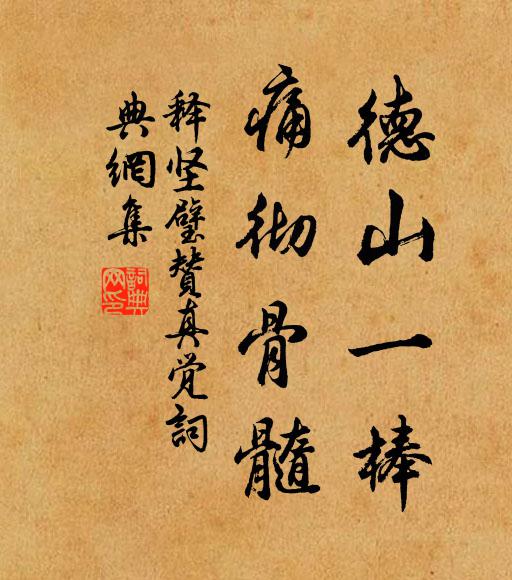 德山一棒
痛彻骨髓
释坚璧赞真觉詞
典網集
詞典
网印